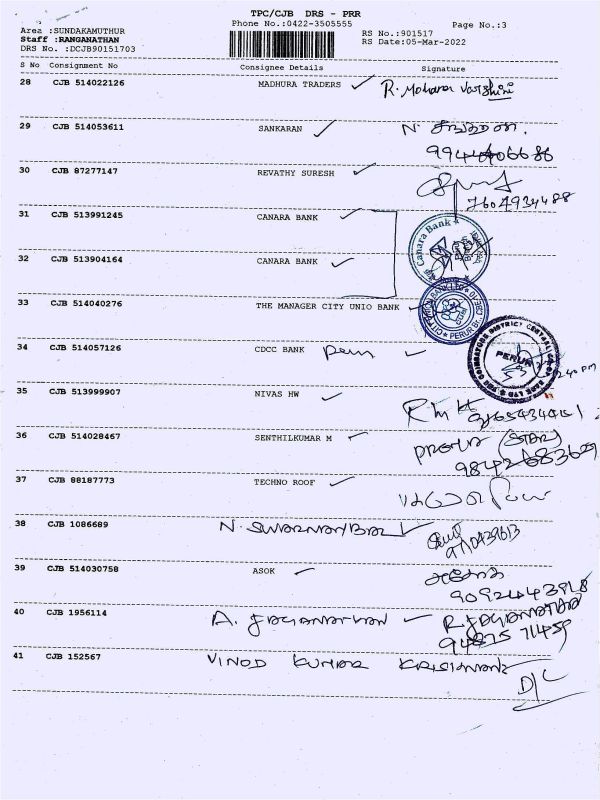 TPC/CJB DRS - PRR
Phone No.:0422-3505555
Page No.:3
Area :SUNDAKAMUTHUR
Staff :RANGANATHAN
DRS No. :DCJB90151703
RS No.:901517
RS Date:05-Mar-2022
S No Consignment No Consignee Details Signature
28 CJB 514022126 MADHURA TRADERS R. Mohana Varshini
29 CJB 514053611 SANKARAN N.
30 CJB 87277147 REVATHY SURESH
7604934488
31 CJB 513991245 CANARA BANK
Canara Bank
32 CJB 513904164 CANARA BANK
33 CJB 514040276 THE MANAGER CITY UNIO BANK
PERUR
34 CJB 514057126 CDCC BANK
PERUR
35 CJB 513999907 NIVAS HW
36 CJB 514028467 SENTHILKUMAR M
(STAR)
9842683629
37 CJB 88187773 TECHNO ROOF
38 CJB 1086689
39 CJB 514030758 ASOK
9092443918
40 CJB 1956114 A. R. JAGANATHAN
94875 71459
41 CJB 152567 VINOD KUMAR
D/C